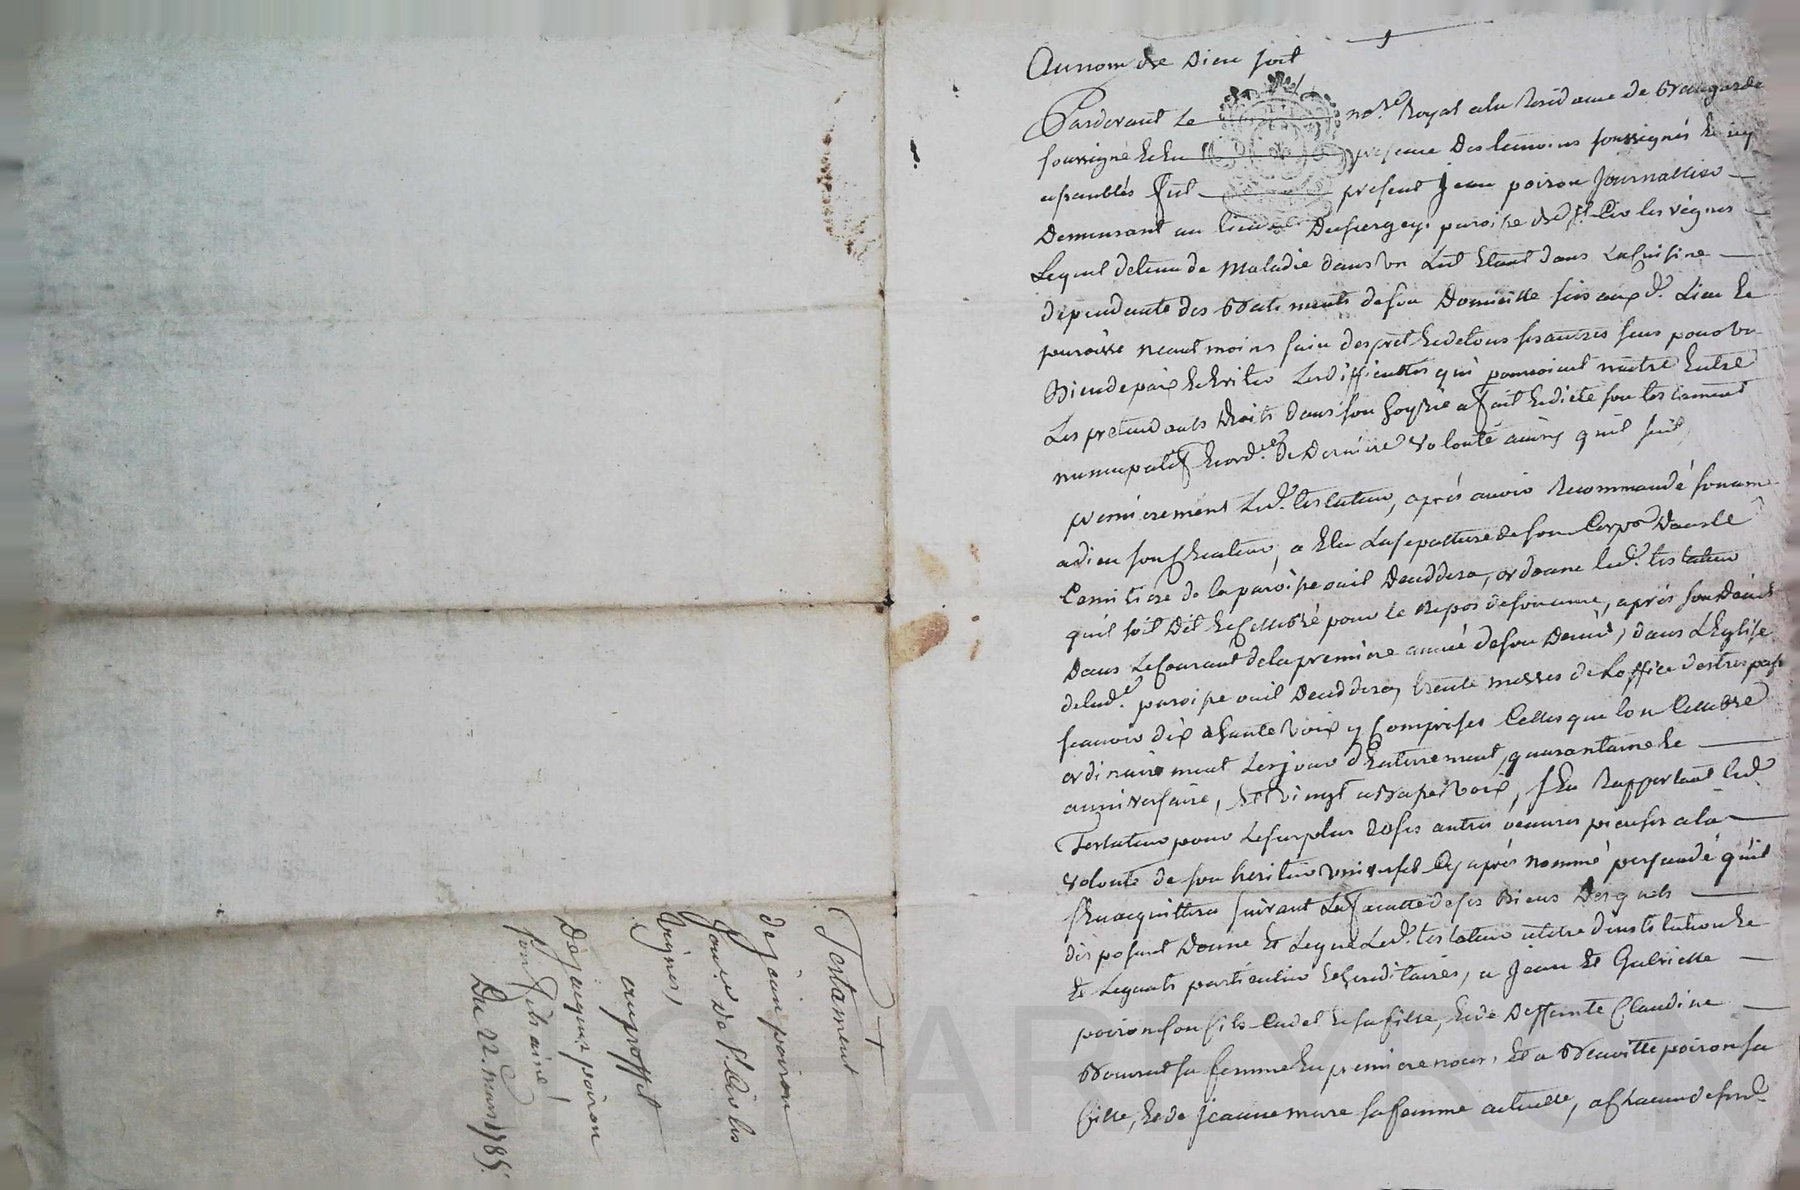 Au nom de Dieu soit
Pardevant Le no.re Royal a la Residence de Beauregarde
soussigné & En presence Des temoins soussignés &
apsanblés fut present Jean poiron Journallier
Demeurant au lieu de paroisse de St Cir les vignes
Lequel detenu de Maladie dans un Lit Etant dans La Cuisine
dependante des Batiments de son Domicille sis aux d. Lieu &
paroisse neantmoins sain desprit & de tous ses autres sens pour
Bien de paix & Eviter Les difficultés qui pourroient naitre Entre
Les pretendants Droits dans son hoyrie a fait & dicté son testament
nuncupatif & ord.ce De Derniere volonté ainsy quil suit,
premierement Led. testateur, aprés avoir Recommandé son ame
a Dieu son Createur, a Elu La sepulture de son Corps Dans le
Cemitiere de la paroisse ou il Deceddera, ordonne led. testateur
quil soit Dit & Cellebré pour le Repos de son ame, aprés son Décés
Dans Le Courant de la premiere année de son Decéds, dans L'Eglise
de lad. paroisse ou il Deceddera, trente messes de L'office des trepassé
scavoir dix a haute voix y Comprises Celles que lon Cellebre
ordinairement Les jour d'Enterrement, quarantaine &
anniversaire, Et vingt a Basse voix, s'En Rapportant led.
Testateur pour Le surplus de ses autres oeuvres pieuses a la
volonté de son heritier universel Cy aprés nommé persuadé quil
s'En acquittera suivant La faculté de ses Biens Desquels
disposant Donne Et Legue Led. testateur a titre d'institution &
& Leguats particulier & hereditaires, a Jean Et Gabrielle
poiron son fils Cadet & sa fille, & de Deffunte Claudine
sa femme En premiere noces, Et a Benoitte poiron sa
fille, & de Jeanne mure sa femme actuelle, a Chacun de
Testament
de jean poiron
Jour.er de St. Cir les
vignes,
au proffit
De jacques poiron
son fils ainé
Du 22. mars 1785.